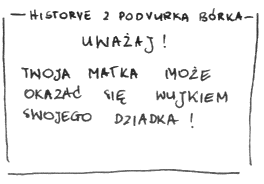 — HISTORYE Z PODVURKA BÓRKA —
UWAŻAJ!
TWOJA MATKA MOŻE
OKAZAĆ SIĘ WUJKIEM
SWOJEGO DZIADKA!